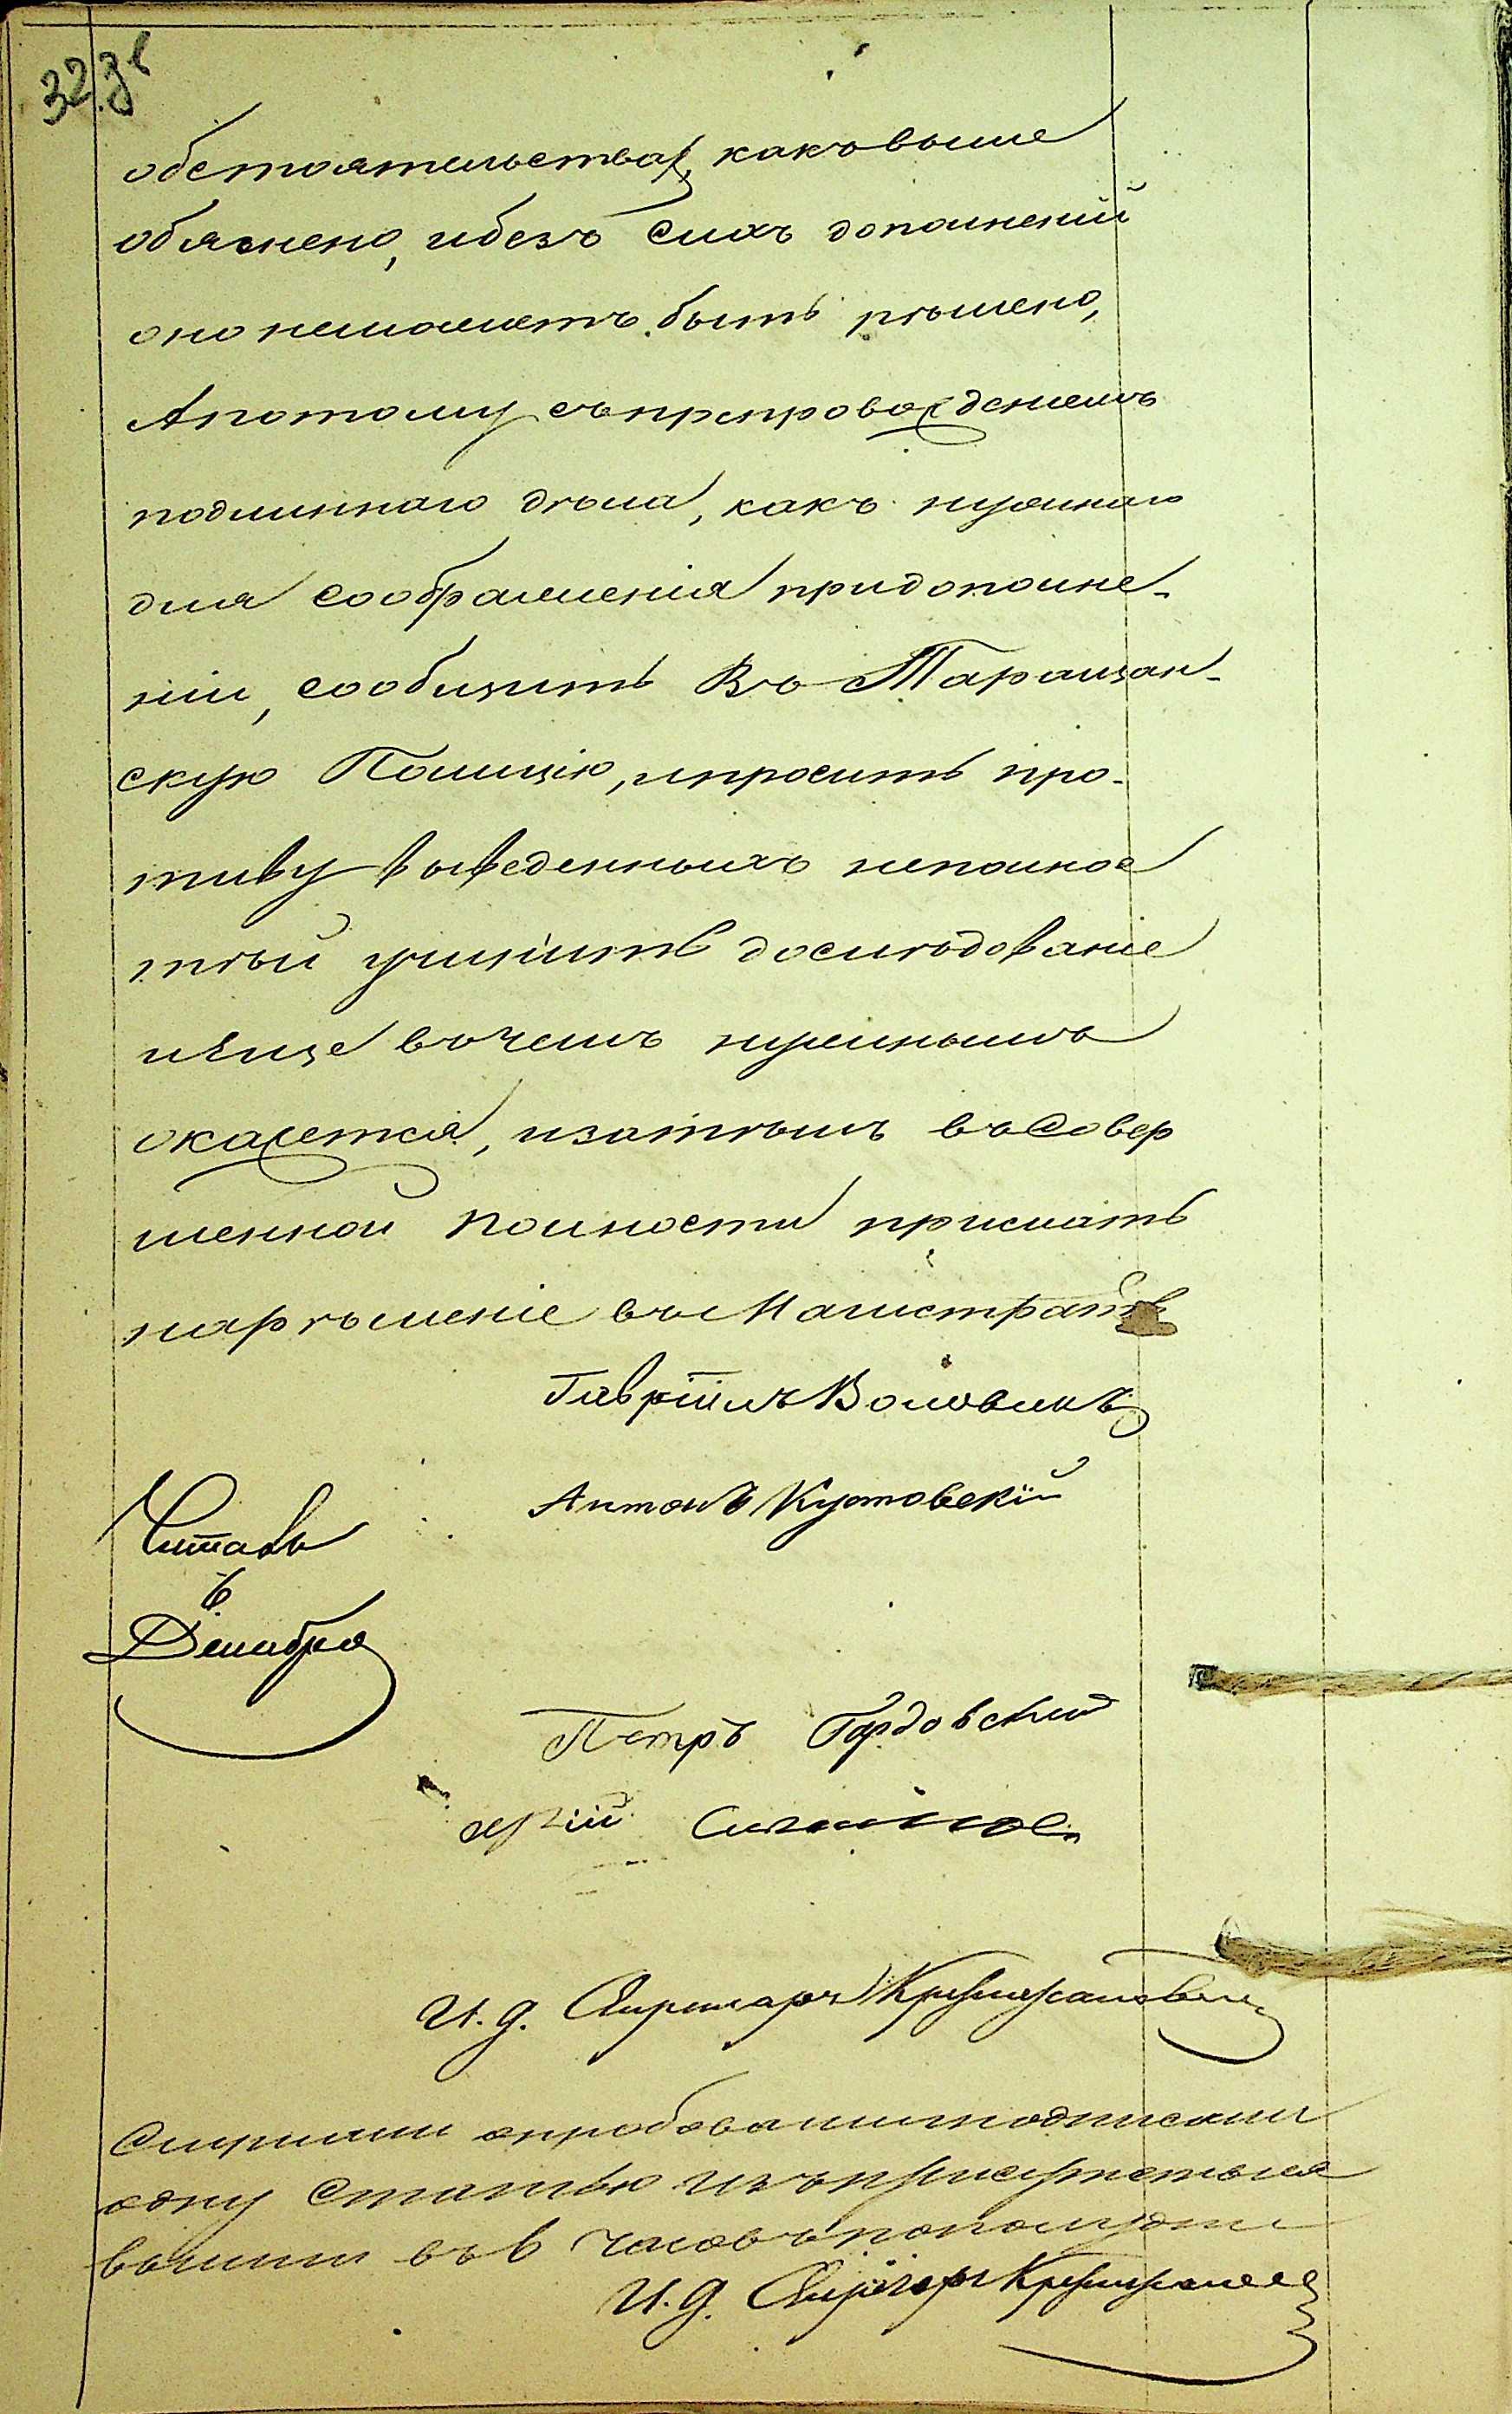 32 зв
обстоятельствах, какъ выше
обяснено, и безъ сихъ дополненій
оно неможетъ быть рѣшено,
А потому съ препровожденіемъ
подлиннаго дѣла, какъ нужнаго
для соображенія при дополне-
ніи, сообщить Въ Таращан-
скую Полицію, и просить про-
тиву выведенныхъ неполное
тѣй учинить дослѣдованіе
и еще въ чемъ нужнымъ
окажется, и затѣмъ въ совер
шенной полности прислать
на рѣшеніе въ Магистратъ
Гавріилъ Воловикъ
Антонъ Кутовскій
Читалъ
6
Декабря
Петръ Гордовскій
И. д. Секретаря
Слушали опробовали и подписали
одну статью изъ присутствія
вышли въ 6 часовъ пополудни
И. д. Секретаря